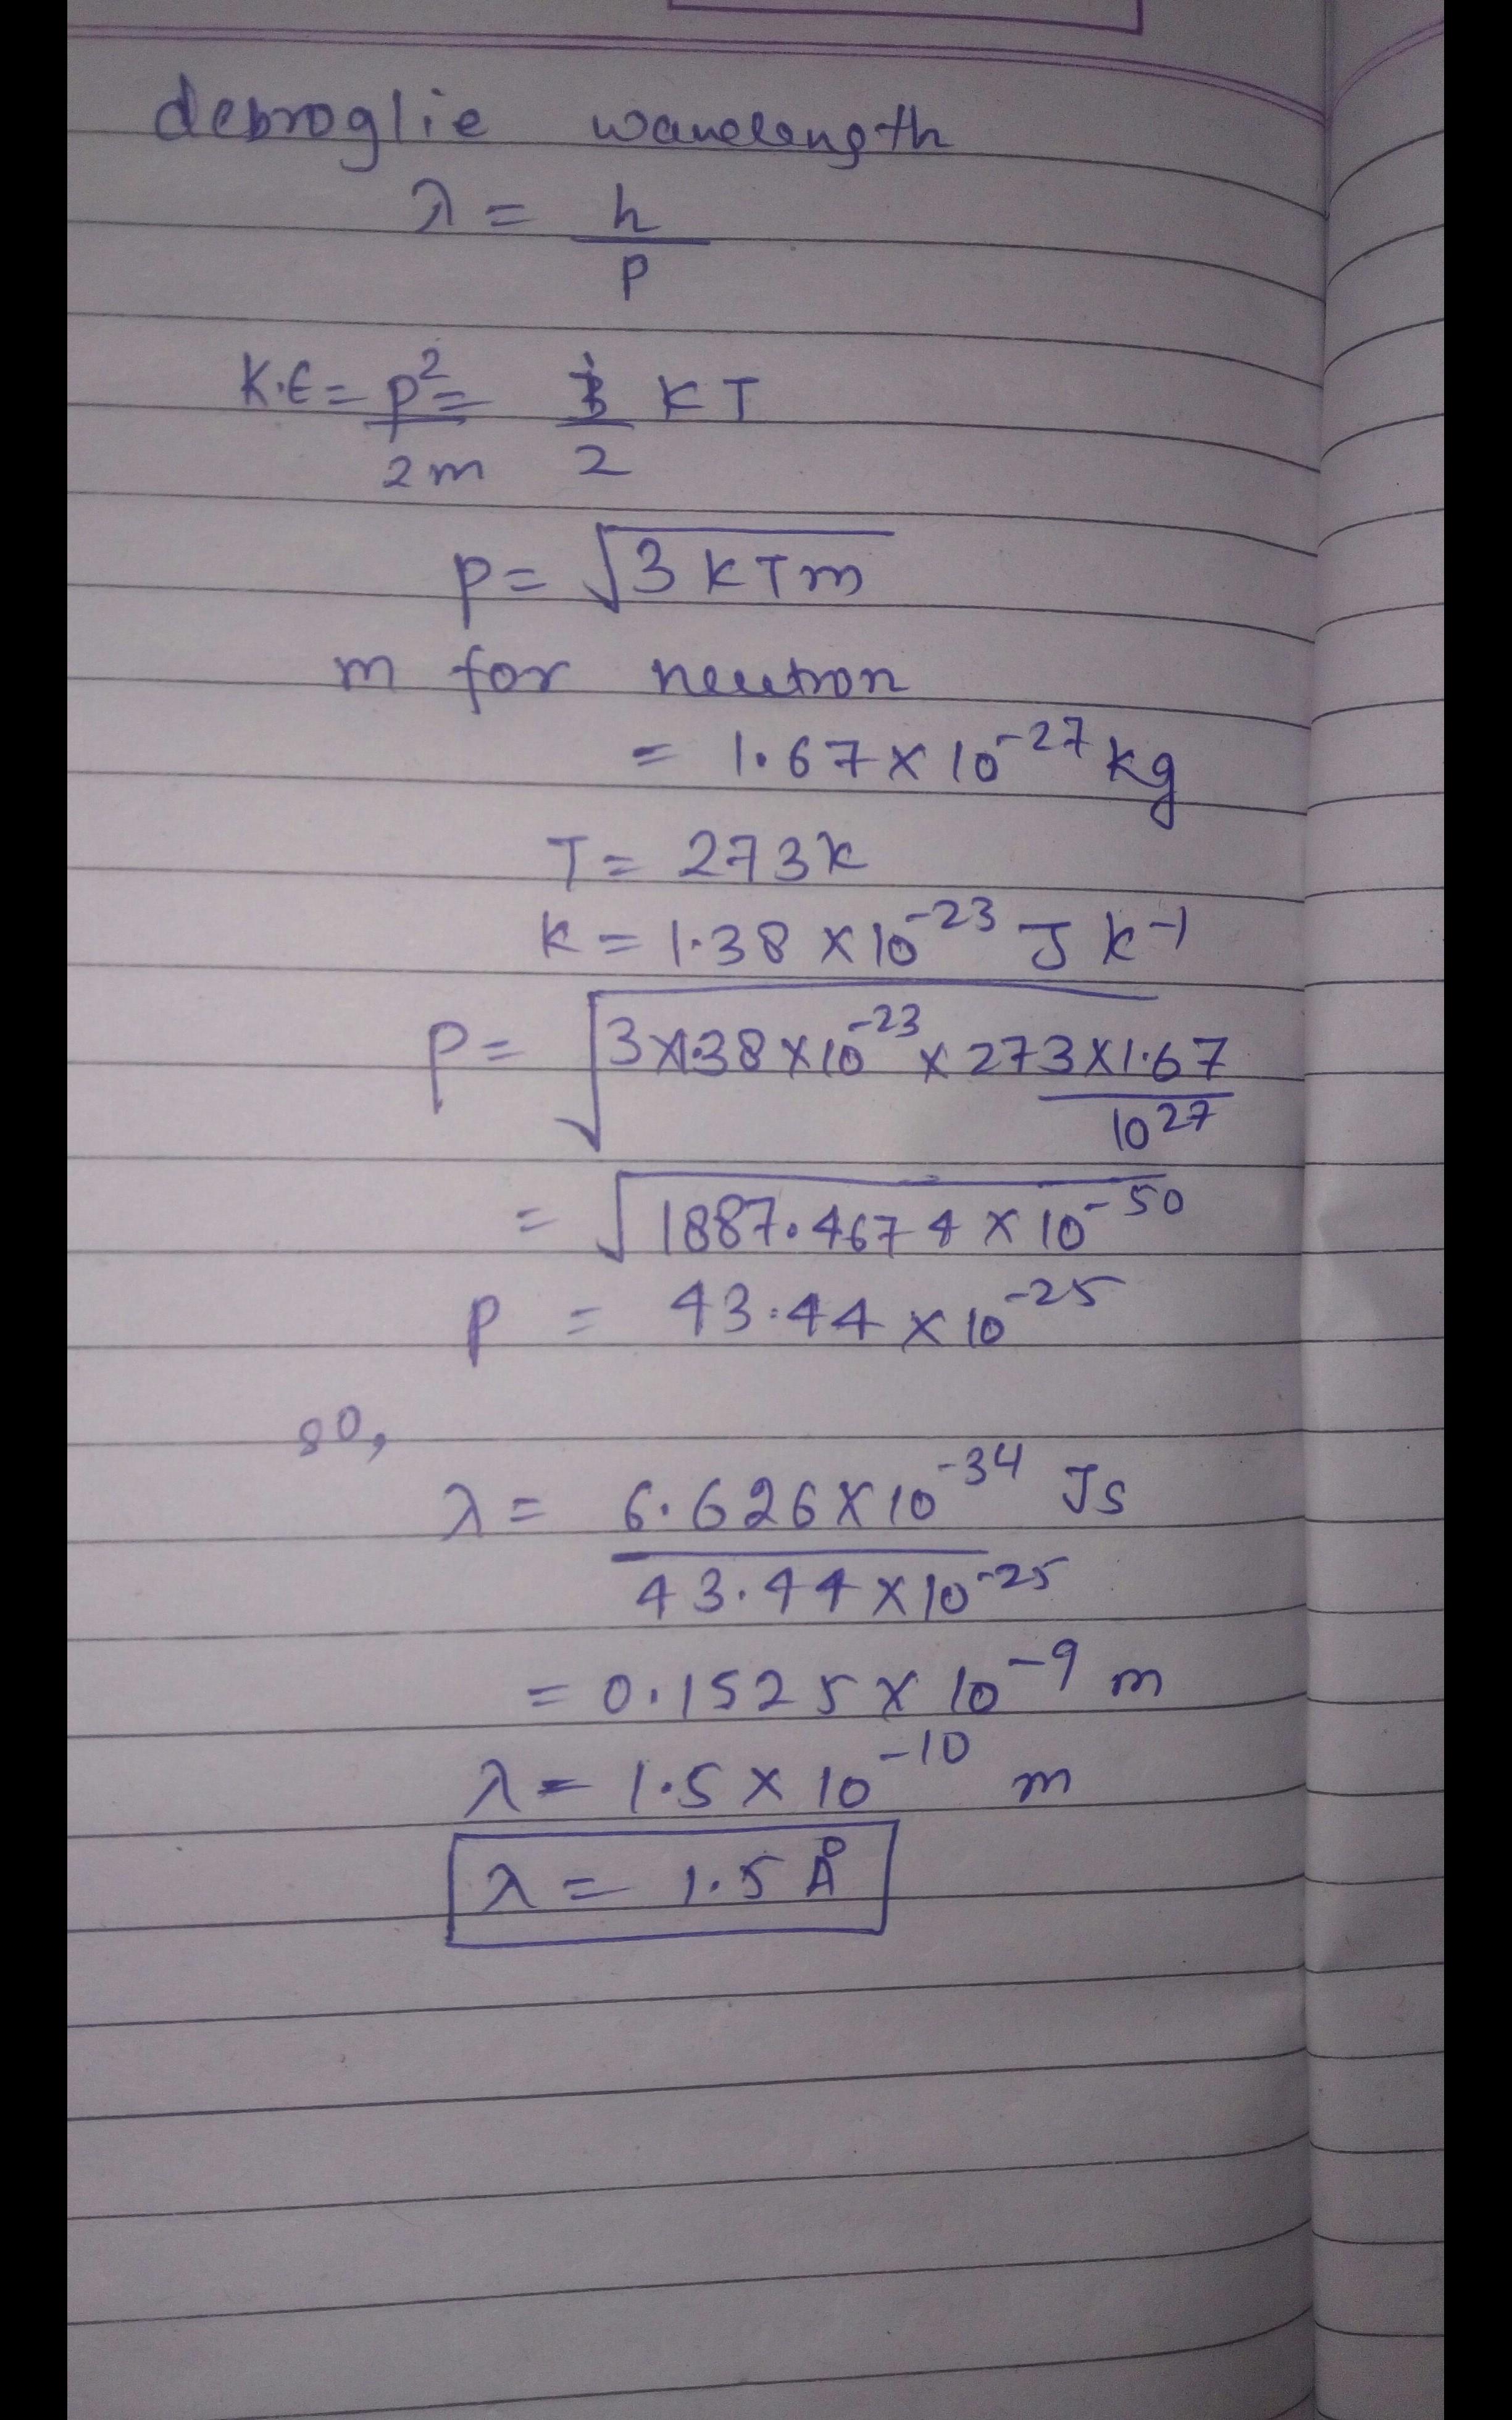 debroglie wavelength
λ = h
P
K.E = p² = 3 KT
2m 2
p = √3 KTm
m for neutron
= 1.67 × 10⁻²⁷ kg
T = 273K
K = 1.38 × 10⁻²³ J K⁻¹
P = √3×1.38×10⁻²³ × 273×1.67
10²⁷
= √1887.4674 × 10⁻⁵⁰
P = 43.44 × 10⁻²⁵
so,
λ = 6.626×10⁻³⁴ Js
43.44×10⁻²⁵
= 0.1525 × 10⁻⁹ m
λ = 1.5 × 10⁻¹⁰ m
λ = 1.5 Å